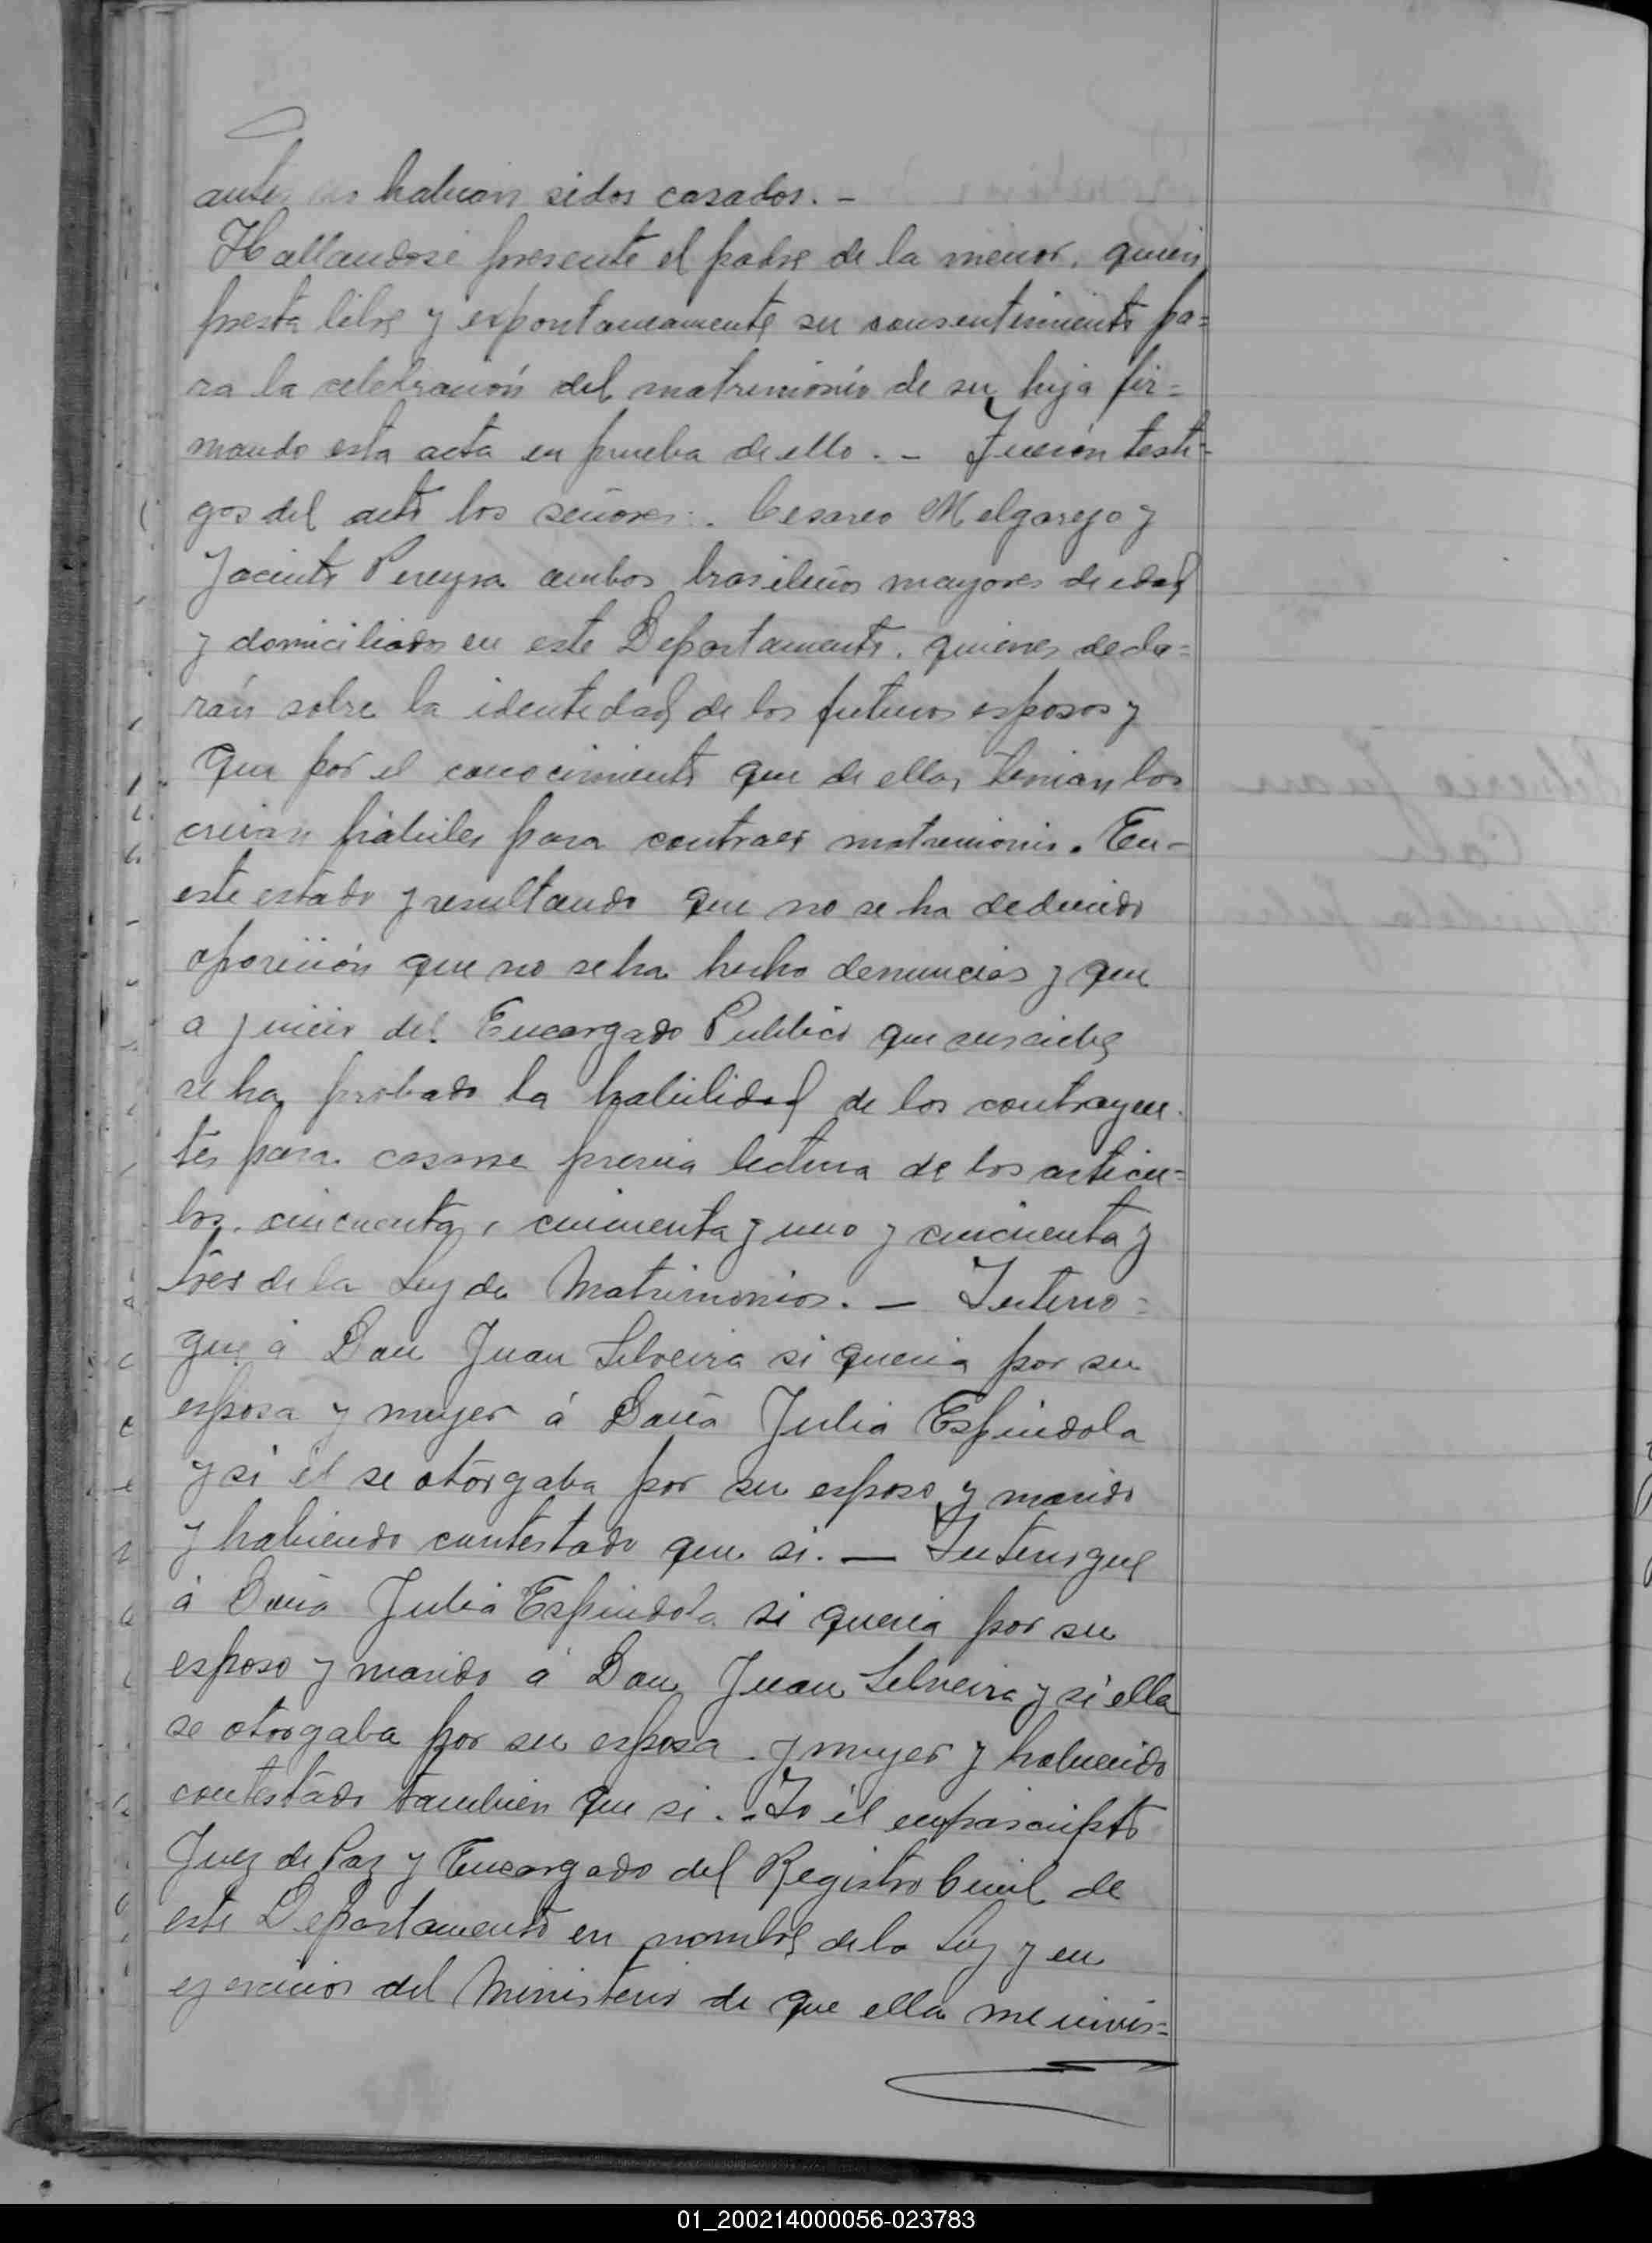 antes no habian sidos casados. -
Hallandose presente el padre de la menor, quien
presta libre y expontaneamente su consentimiento pa=
ra la celebración del matrimonio de su hija fir=
mando esta acta en prueba de ello. - Fueron testi-
gos del acto los señores: Cesareo Melgarejo y
Jacinto Pereyra ambos brasileños mayores de edad
y domiciliados en este Departamento. quienes decla=
rán sobre la identedad de los futuros esposos y
que por el conocimiento que de ellos tenian los
creian habiles para contraer matrimonio. En-
este estado y resultando que no se ha deducido
oposición que no se ha hecho denuncias y que
a juicio del Encargado Publico que suscribe
se ha probado la habilidad de los contrayen-
tes para casarse previa lectura de los articu=
los cincuenta, cincuenta y uno y cincuenta y
tres de la Ley de Matrimonios. - Interro=
gue á Don Juan Silveira si queria por su
esposa y mujer á Doña Julia Espindola
y si él se otorgaba por su esposo y marido
y habiendo contestado que si. - Interrogue
á Doña Julia Espindola si queria por su
esposo y marido á Don Juan Silveira y si ella
se otorgaba por su esposa y mujer y habiendo
contestado tambien que si. - Yo él enfrascripto
Juez de Paz y Encargado del Registro Civil de
este Departamento en nombre de la Ley y en
ejercicios del Ministerio de que ella me invis=
01_200214000056-023783